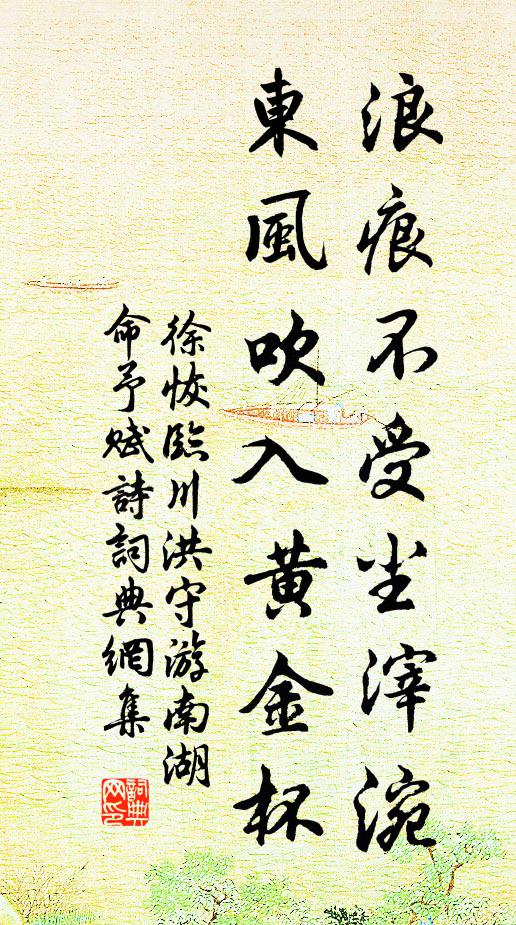 浪痕不受尘滓涴
東風吹入黄金杯
徐恢臨川洪守游南湖
命予賦詩詞典網集
詞典网印